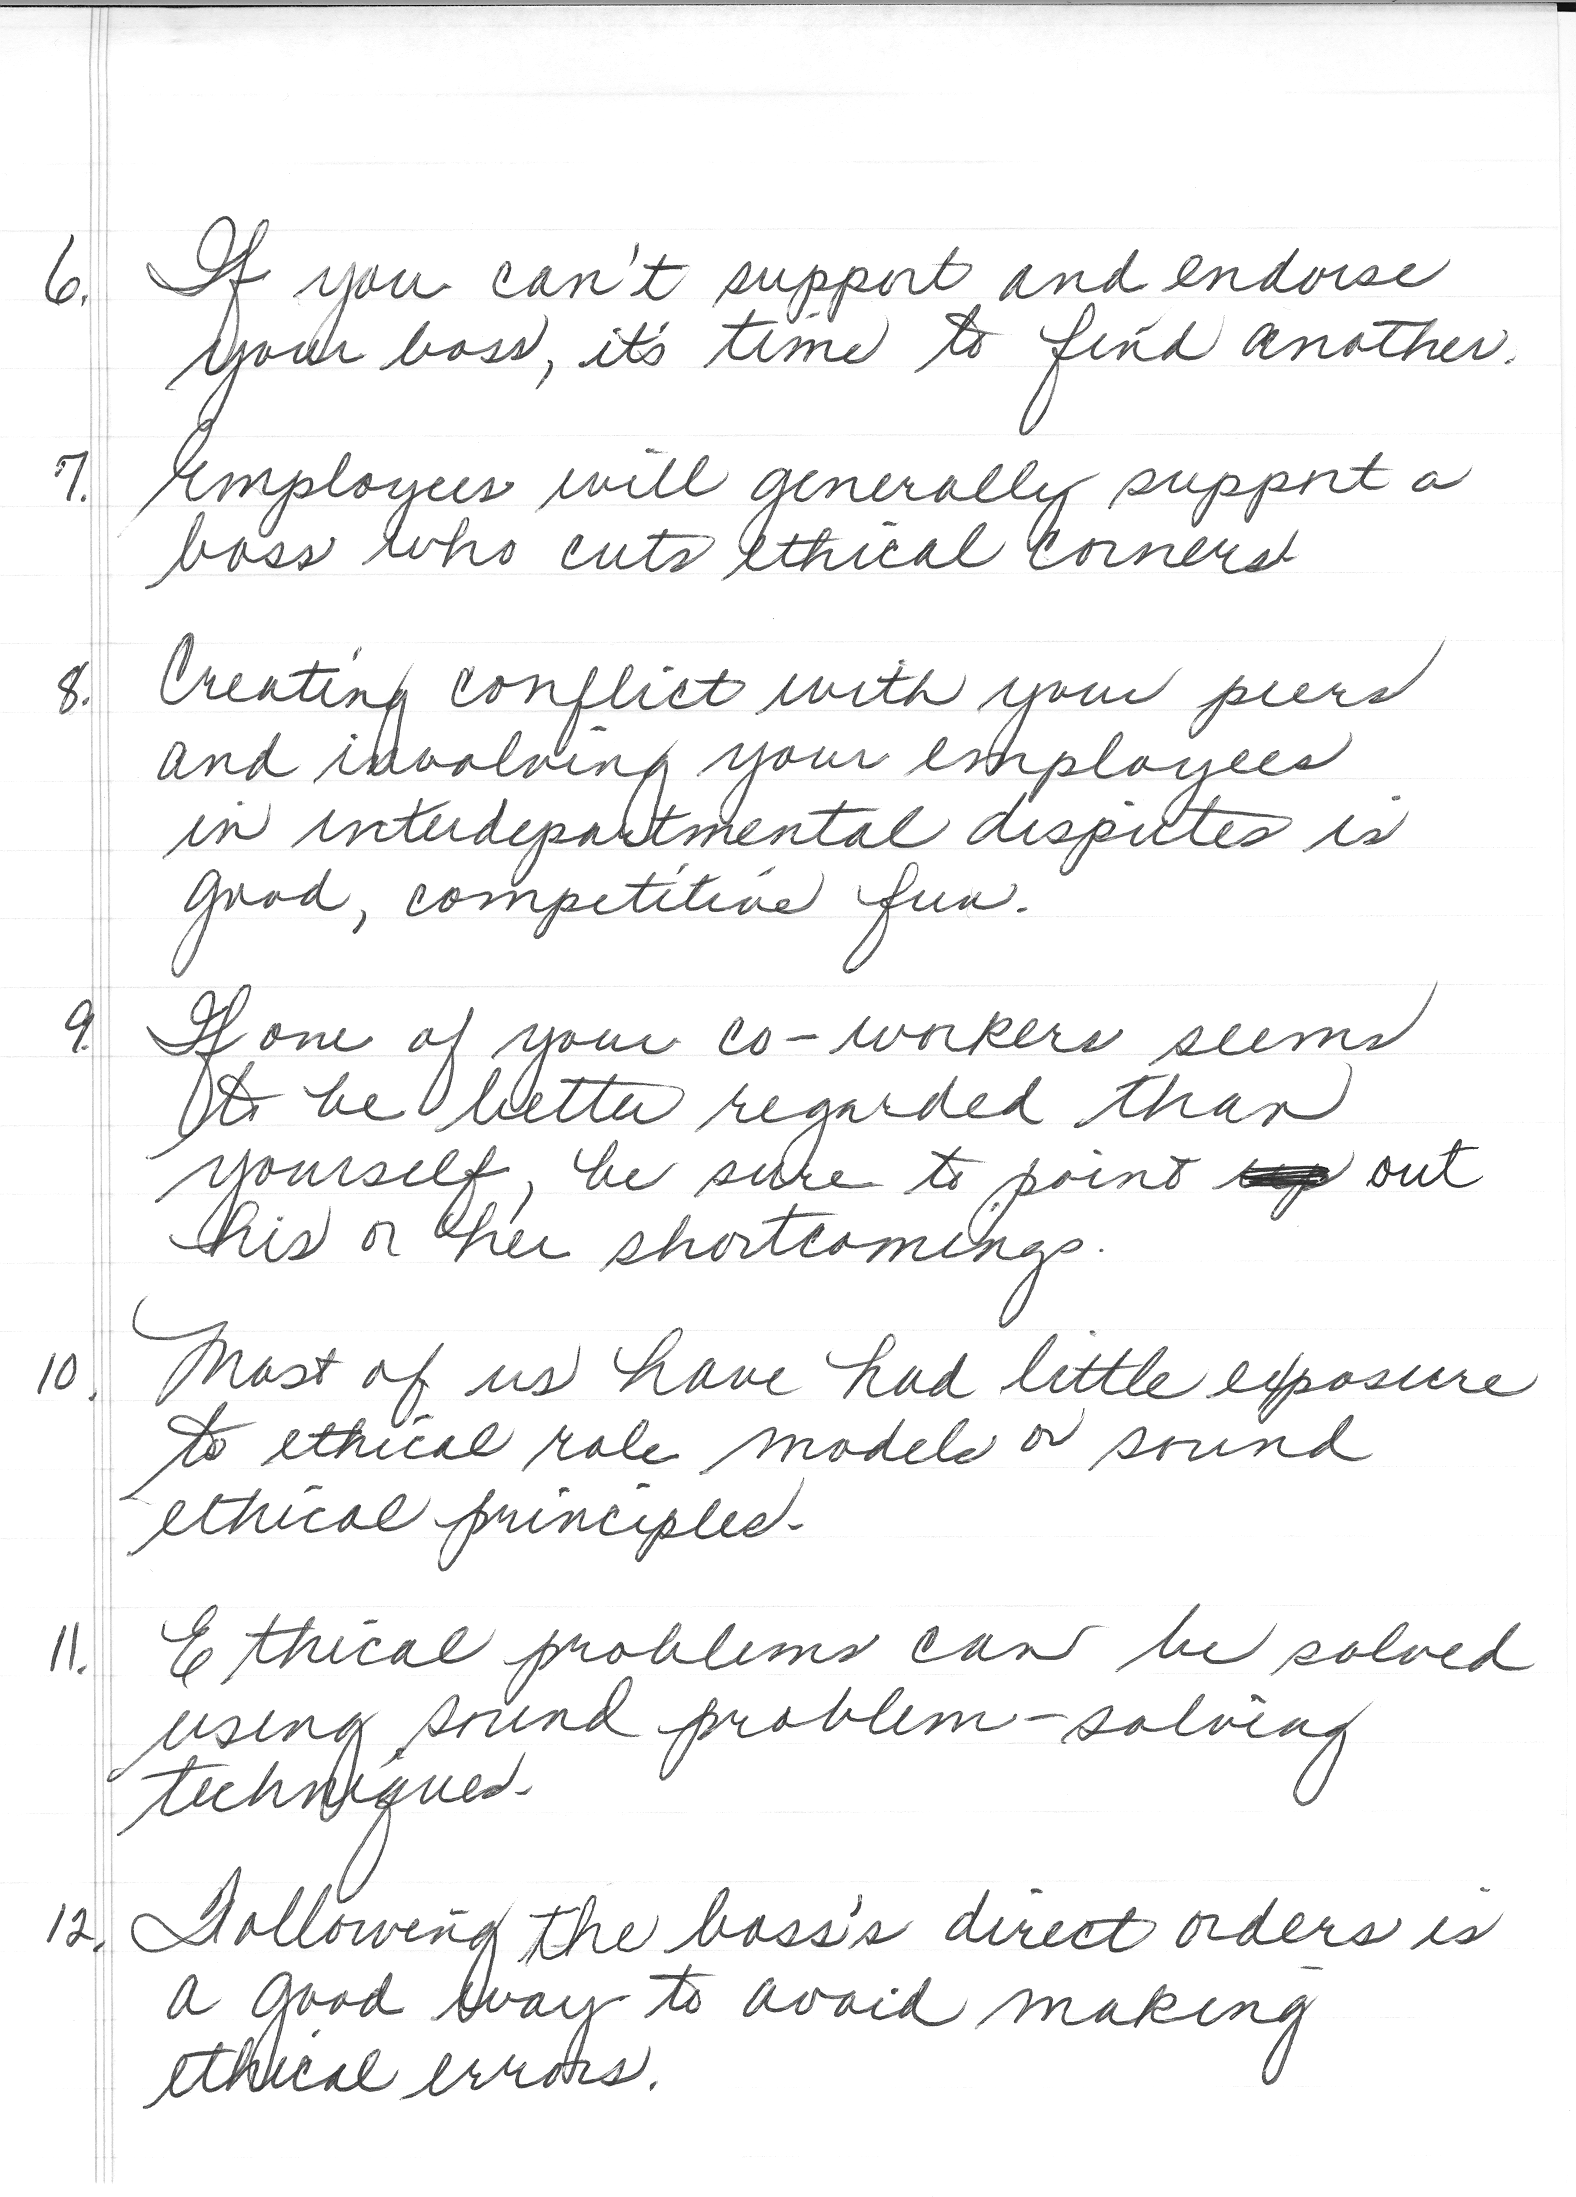 6. If you can't support and endorse
your boss, it's time to find another.
7. Employees will generally support a
boss who cuts ethical corners.
8. Creating conflict with your peers
and involving your employees
in interdepartmental disputes is
good, competitive fun.
9. If one of your co-workers seems
to be better regarded than
yourself, be sure to point out
his or her shortcomings.
10. Most of us have had little exposure
to ethical role models or sound
ethical principles.
11. Ethical problems can be solved
using sound problem-solving
techniques.
12. Following the boss's direct orders is
a good way to avoid making
ethical errors.